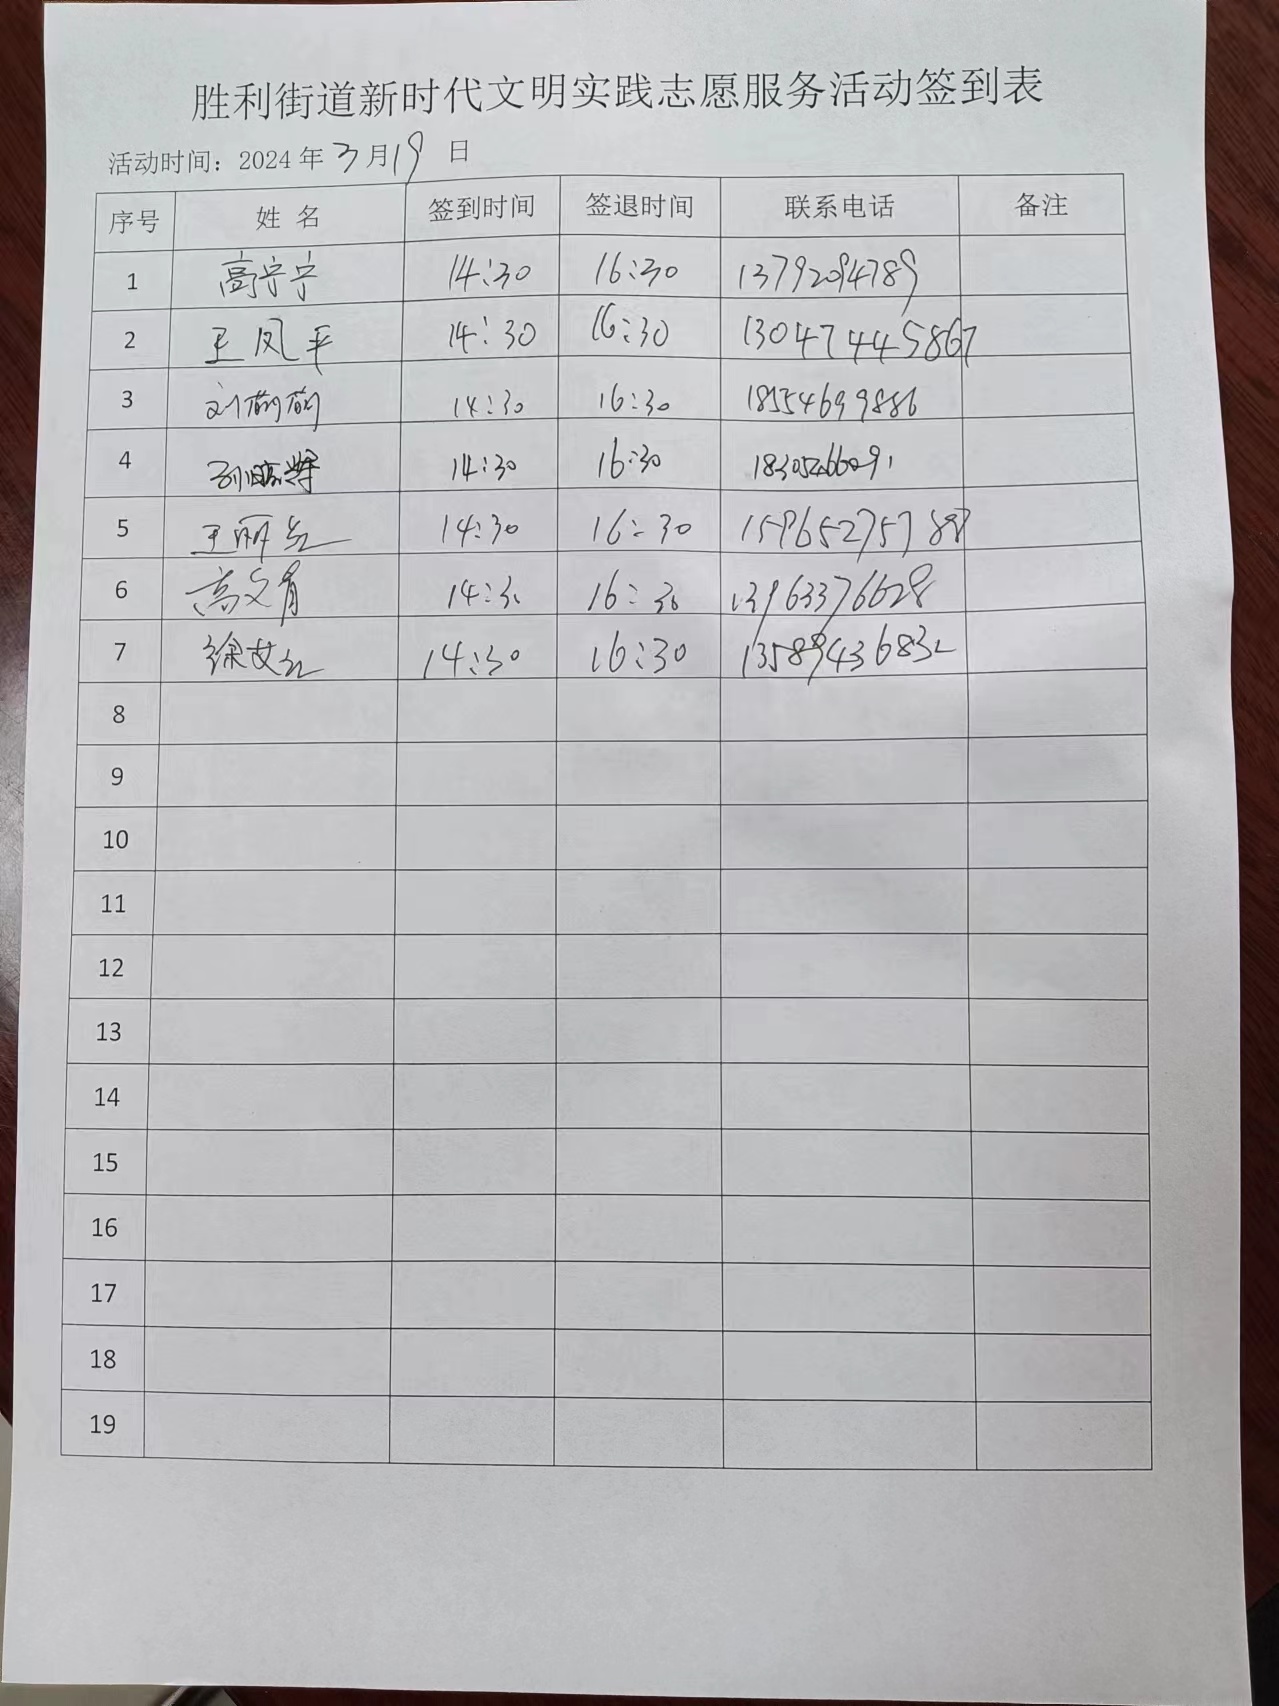 胜利街道新时代文明实践志愿服务活动签到表
活动时间：2024 年 3 月 19 日
序号 姓 名 签到时间 签退时间 联系电话 备注
1 高宁宁 14:30 16:30 13792094789
2 王凤平 14:30 16:30 13047445867
3 刘萌萌 14:30 16:30 18554699886
4 14:30 16:30
5 14:30 16:30
6 高文有 14:30 16:30 13963376628
7 14:30 16:30 13589436832
8
9
10
11
12
13
14
15
16
17
18
19